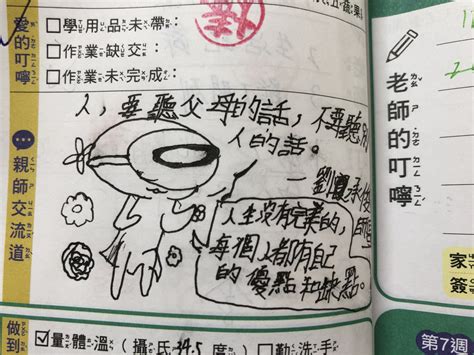 五蔬果
愛的叮嚀
□學用品未帶：
□作業缺交：
□作業未完成：
人，要聽父母的話，不要聽別
人的話。
親師交流道
人生沒有完美的，
每個人都有自己
的優點和缺點。
老師的叮嚀
做到
☑量體溫(攝氏34.5度)
□勤洗手
家
簽
第7週